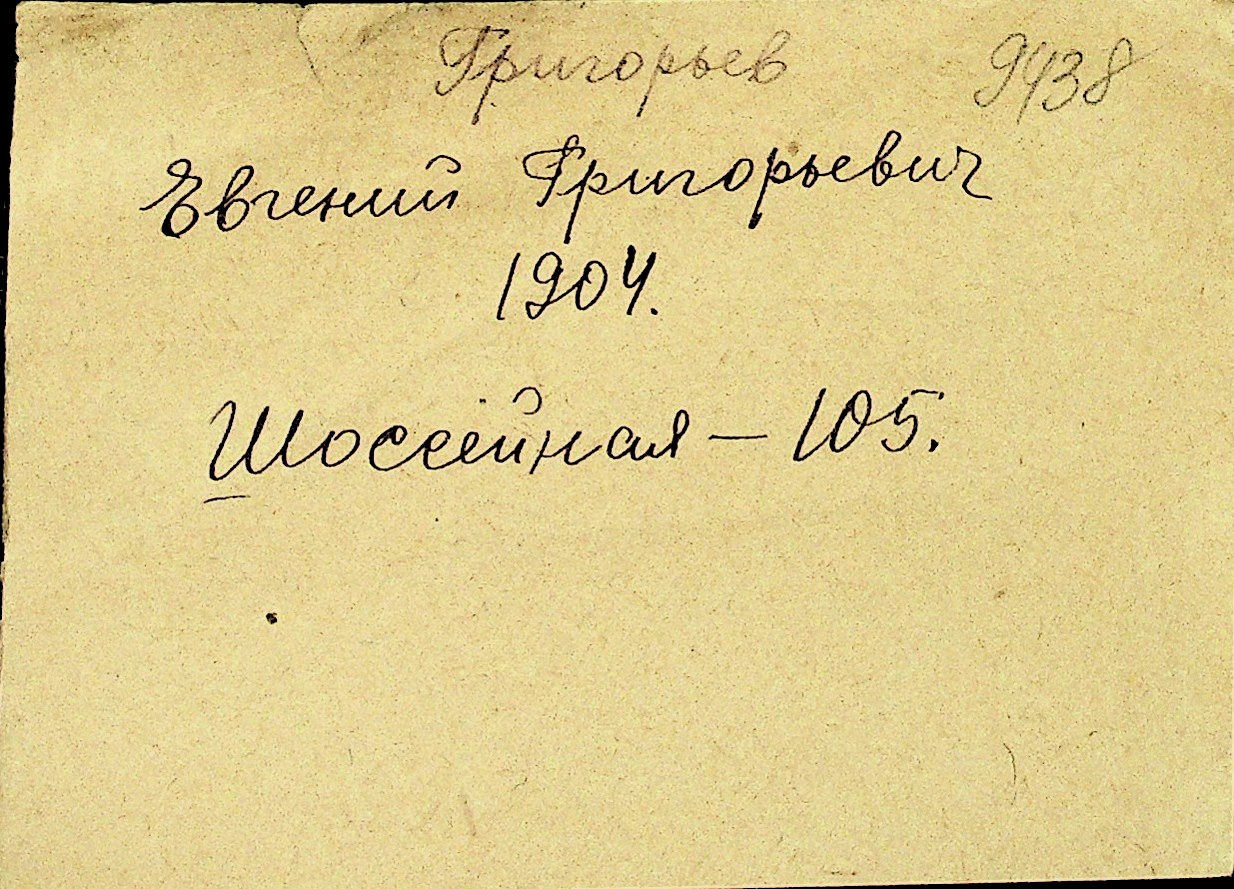 Григорьев 9438
Евгений Григорьевич
1904.
Шоссейная — 105.